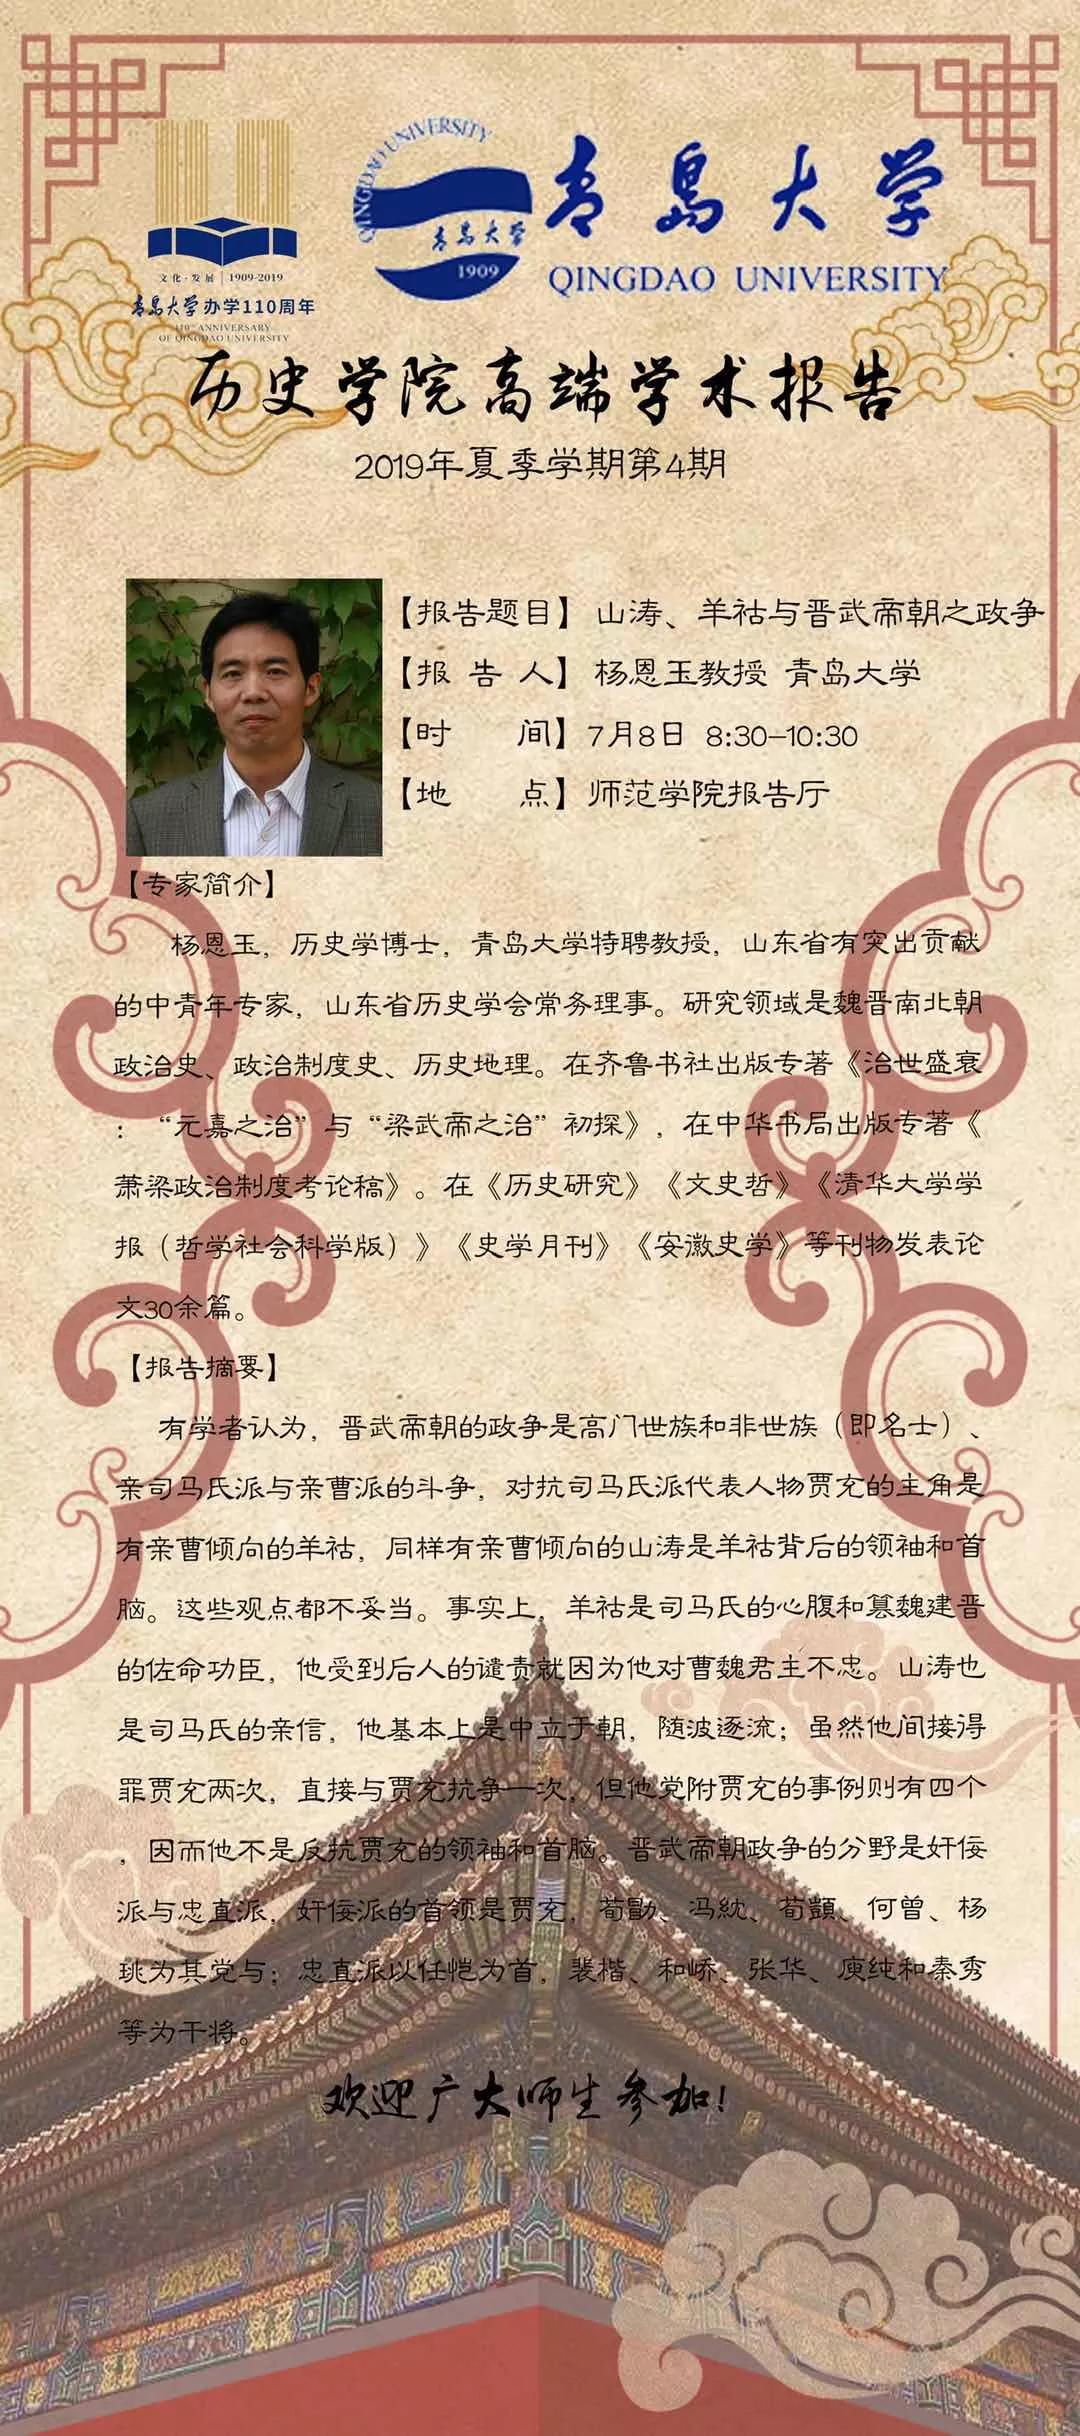 QINGDAO UNIVERSITY
青岛大学
1909
青岛大学
QINGDAO UNIVERSITY
文化·发展 | 1909-2019
青岛大学办学110周年
110th ANNIVERSARY
OF QINGDAO UNIVERSITY
历史学院高端学术报告
2019年夏季学期第4期
【报告题目】山涛、羊祜与晋武帝朝之政争
【报 告 人】杨恩玉教授 青岛大学
【时 间】7月8日 8:30-10:30
【地 点】师范学院报告厅
【专家简介】
杨恩玉，历史学博士，青岛大学特聘教授，山东省有突出贡献
的中青年专家，山东省历史学会常务理事。研究领域是魏晋南北朝
政治史、政治制度史、历史地理。在齐鲁书社出版专著《治世盛衰
：“元嘉之治”与“梁武帝之治”初探》，在中华书局出版专著《
萧梁政治制度考论稿》。在《历史研究》《文史哲》《清华大学学
报（哲学社会科学版）》《史学月刊》《安徽史学》等刊物发表论
文30余篇。
【报告摘要】
有学者认为，晋武帝朝的政争是高门世族和非世族（即名士）、
亲司马氏派与亲曹派的斗争，对抗司马氏派代表人物贾充的主角是
有亲曹倾向的羊祜，同样有亲曹倾向的山涛是羊祜背后的领袖和首
脑。这些观点都不妥当。事实上，羊祜是司马氏的心腹和篡魏建晋
的佐命功臣，他受到后人的谴责就因为他对曹魏君主不忠。山涛也
是司马氏的亲信，他基本上是中立于朝，随波逐流；虽然他间接得
罪贾充两次，直接与贾充抗争一次，但他党附贾充的事例则有四个
，因而他不是反抗贾充的领袖和首脑。晋武帝朝政争的分野是奸佞
派与忠直派，奸佞派的首领是贾充，荀勖、冯紞、荀顗、何曾、杨
珧为其党与；忠直派以任恺为首，裴楷、和峤、张华、庾纯和秦秀
等为干将。
欢迎广大师生参加！